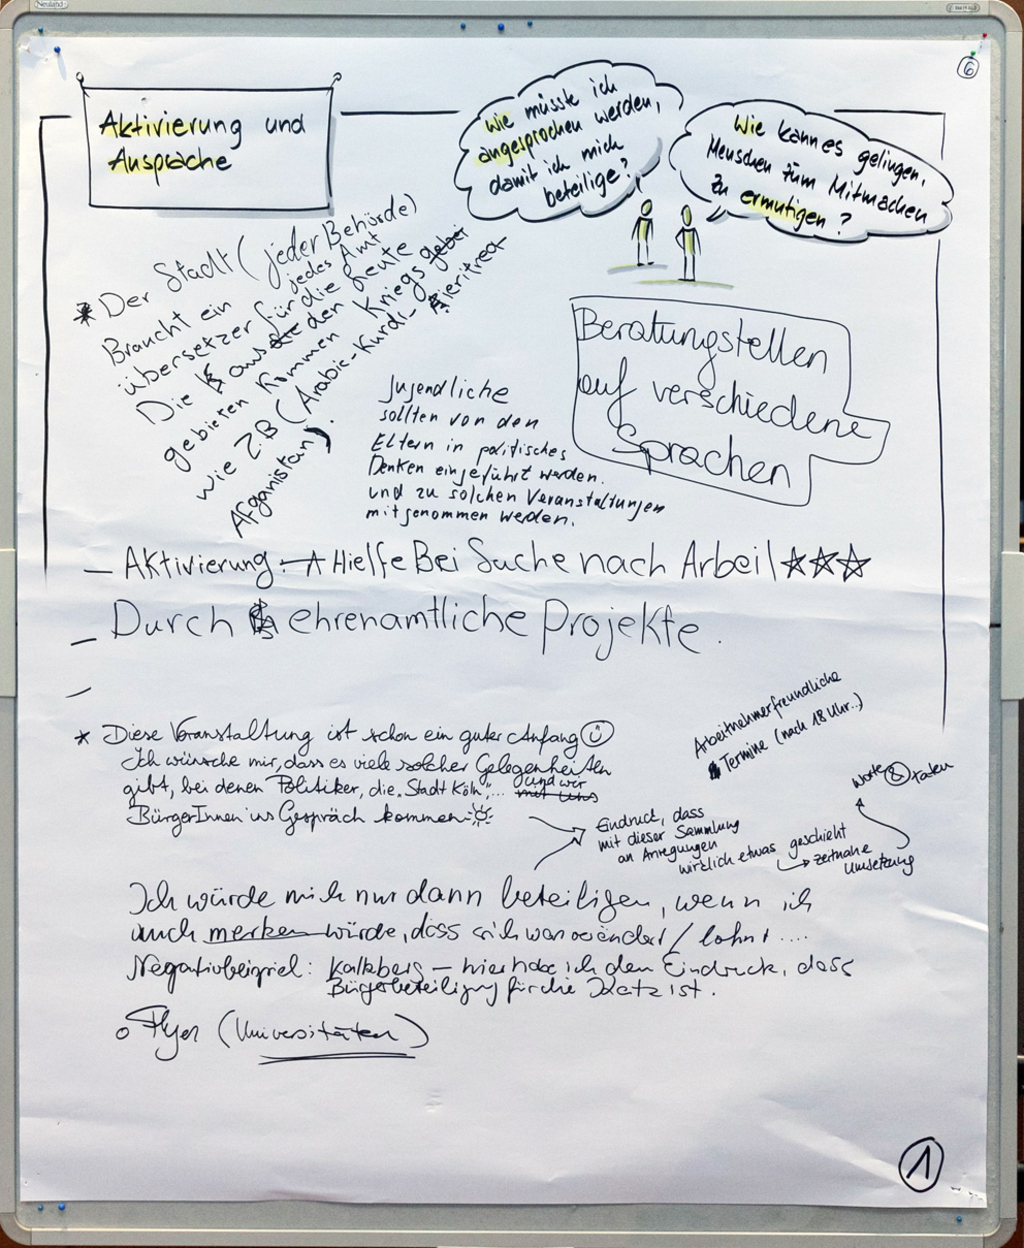 Neuland
6
Aktivierung und
Ansprache
Wie müsste ich
angesprochen werden,
damit ich mich
beteilige?
Wie kann es gelingen,
Menschen zum Mitmachen
zu ermutigen?
* Der Stadt (jeder Behörde)
jedes Amt
Braucht ein
übersetzer für die Leute
Die aus den Kriegs
gebieten kommen
wie Z.B (Arabic-Kurdi-eritrea
Afganistan).
Beratungstellen
auf verschiedene
Sprachen
Jugendliche
sollten von den
Eltern in politisches
Denken eingeführt werden.
und zu solchen Veranstaltungen
mitgenommen werden.
— Aktivierung: → Hielfe Bei Suche nach Arbeit ☆☆☆
— Durch ehrenamtliche Projekte.
—
Arbeitnehmerfreundliche
Termine (nach 18 Uhr..)
* Diese Veranstaltung ist schon ein guter Anfang ☺
Ich wünsche mir, dass es viele solcher Gelegenheiten
gibt, bei denen Politiker, die „Stadt Köln"... und wir
mit uns
BürgerInnen ins Gespräch kommen
Worte & Taten
Eindruck, dass
mit dieser Sammlung
an Anregungen
wirklich etwas geschieht
→ zeitnahe
Umsetzung
Ich würde mich nur dann beteiligen, wenn ich
auch merken würde, dass sich was verändert / lohnt ....
Negativbeispiel: Kalkberg – hier habe ich den Eindruck, dass
Bürgerbeteiligung für die Katz ist.
o Flyer (Universitäten)
1